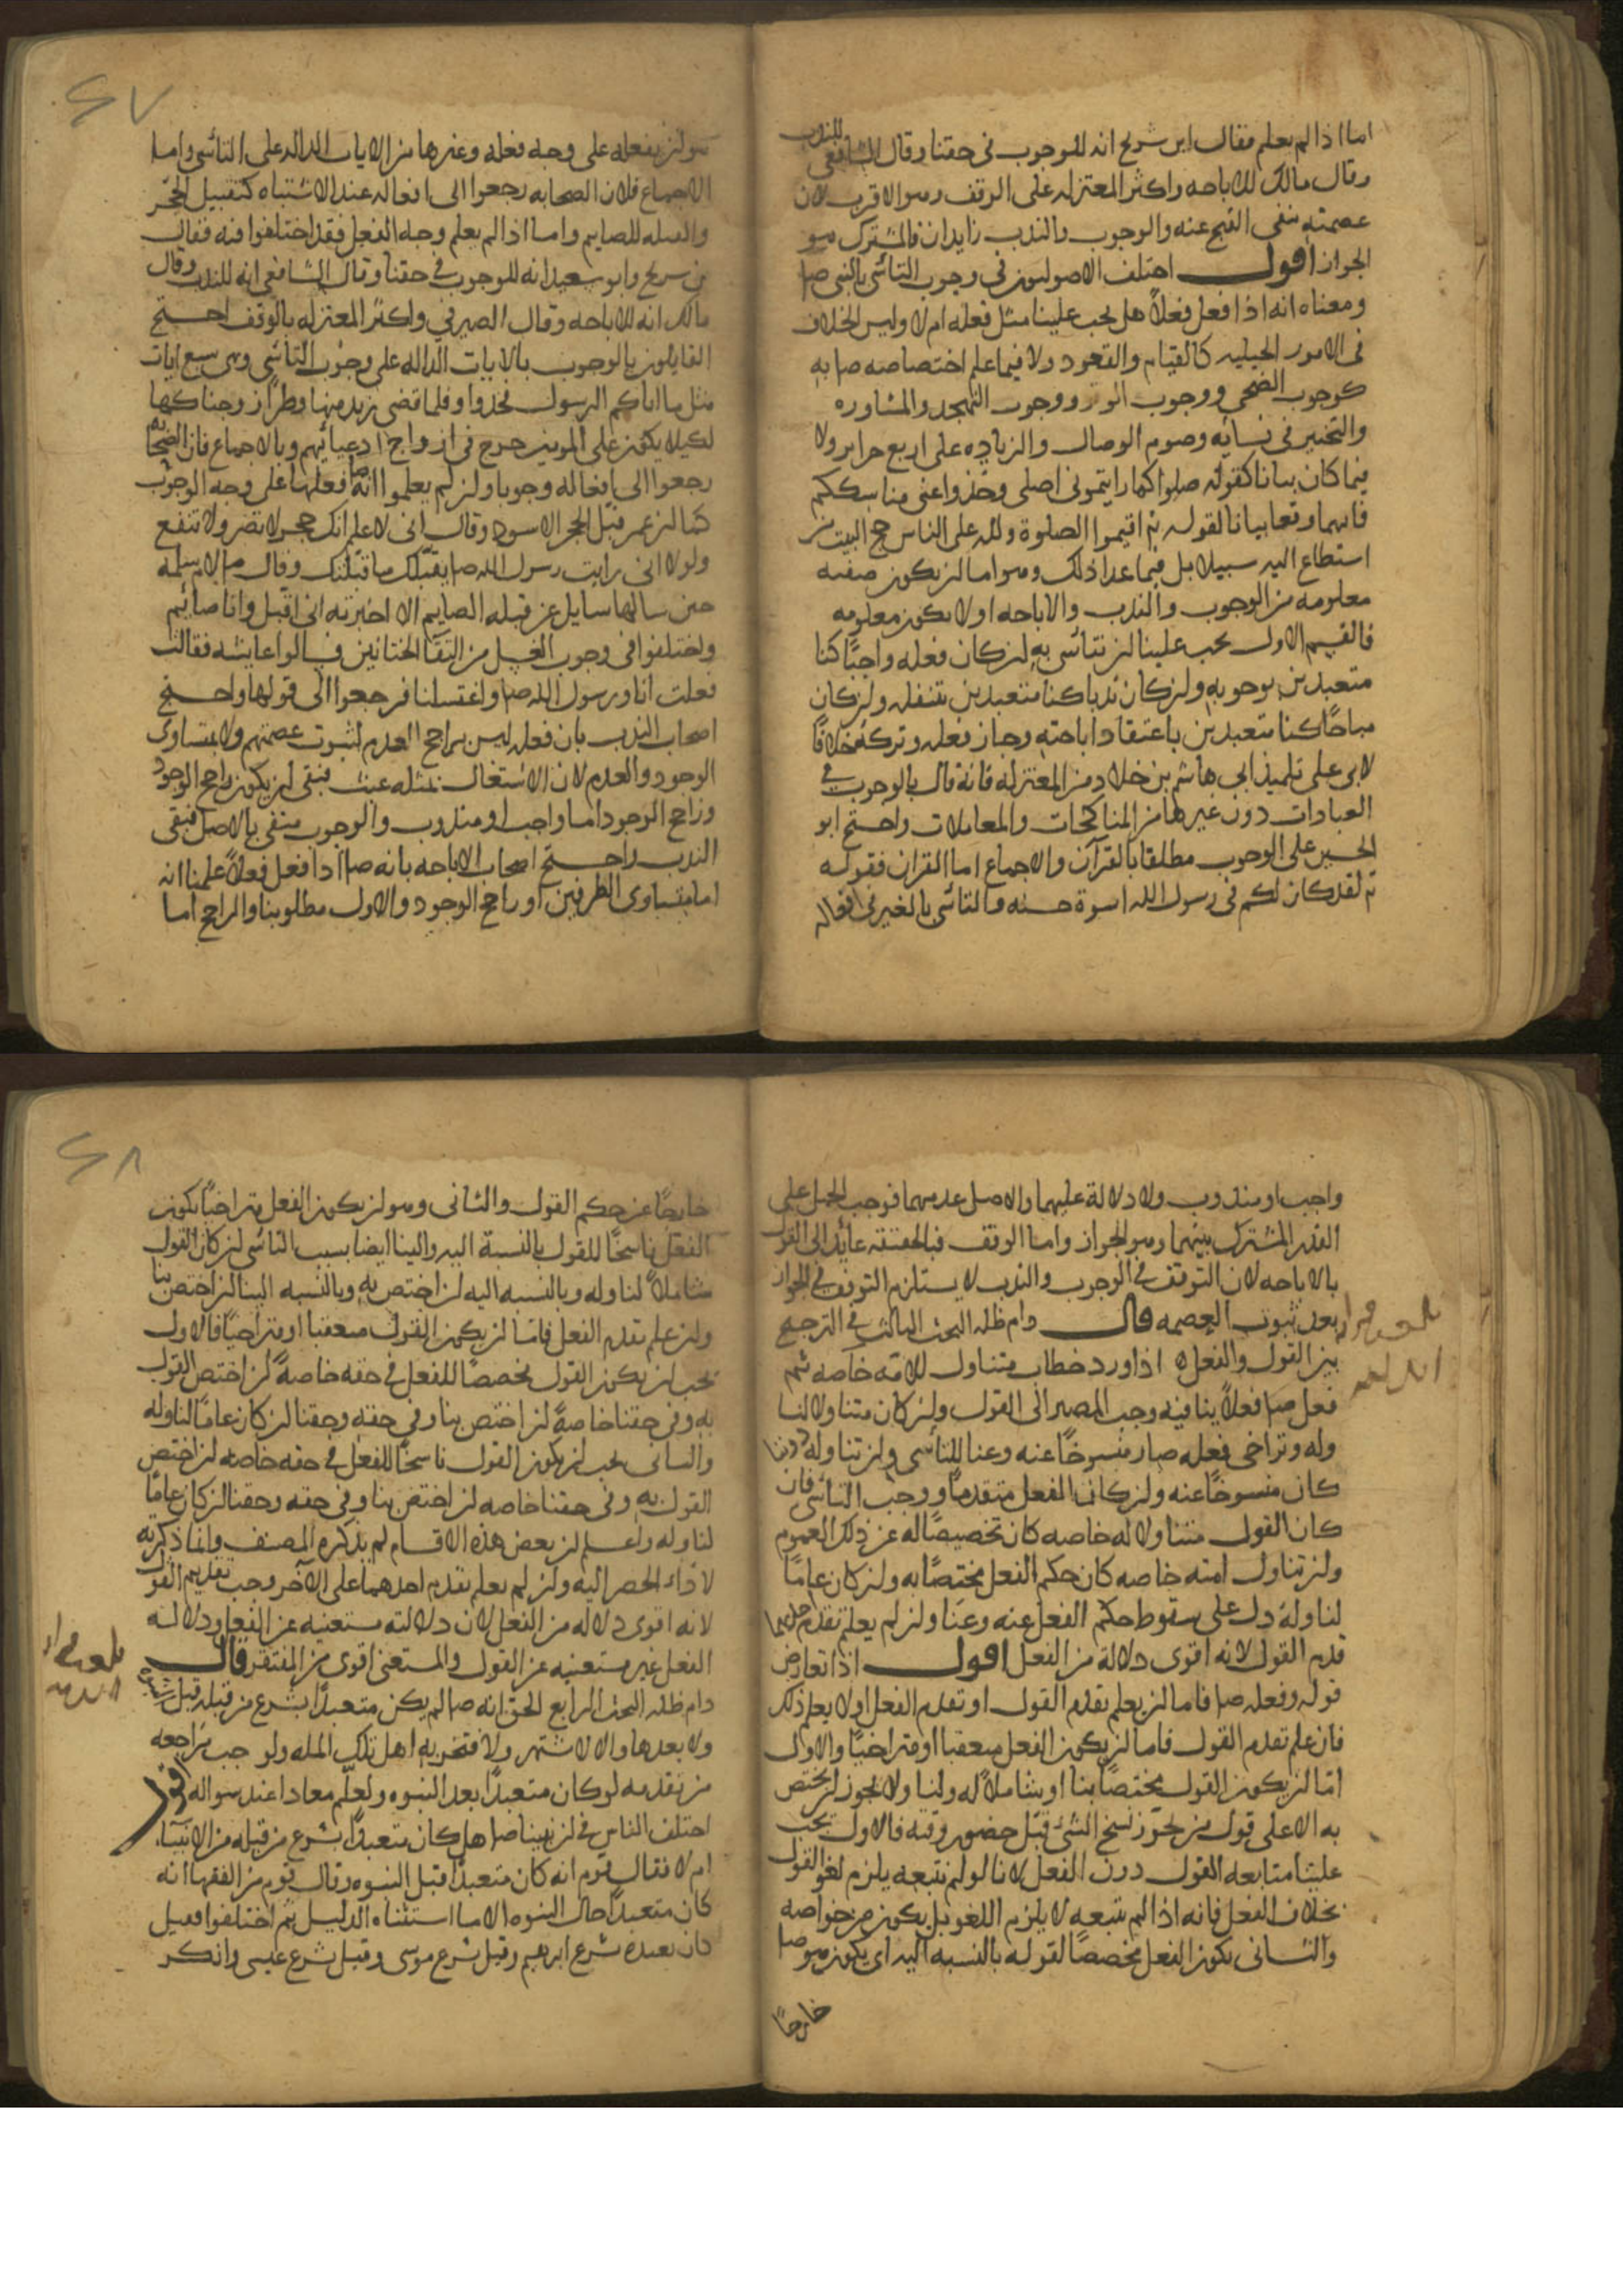 اما اذا لم يعلم فقال ابن سريج انه للوجوب فى حقنا وقال الشافعى للندب
وقال مالك للاباحه واكثر المعتزله على الوقف وهو الاقرب لان
عصمته تنفى القبح عنه والوجوب والندب زايدان فالمشترك هو
الجواز اقول اختلف الاصوليون فى وجوب التاسّى بالنبى صلا
ومعناه انه اذا فعل فعلاً هل يجب علينا مثل فعله ام لا وليس الخلاف
فى الامور الجبليه كالقيام والقعود ولا فيما علم اختصاصه صلا به
كوجوب الضحى ووجوب الوتر ووجوب التهجد والمشاوره
والتخيير فى نسائه وصوم الوصال والزياده على اربع حراير ولا
فيما كان بيانا كقوله صلوا كما رايتمونى اصلى وخذوا عنى مناسككم
فانهما وقعا بيانا لقوله تم اقيموا الصلوة ولله على الناس حج البيت من
استطاع اليه سبيلا بل فيما عدا ذلك وهو اما ان يكون صفته
معلومه من الوجوب والندب والاباحه او لا يكون معلومه
فالقسم الاول يجب علينا ان نتاسّى به ان كان فعله واجبًا كنا
متعبدين بوجوبه وان كان ندبا كنا متعبدين بتنفله وان كان
مباحًا كنا متعبدين باعتقاد اباحته وجاز فعله وتركه خلافًا
لابى على تلميذ ابى هاشم بن خلاد من المعتزله فانه قال بالوجوب فى
العبادات دون غيرها من المناكحات والمعاملات واحتج ابو
الحسين على الوجوب مطلقا بالقرآن والاجماع اما القران فقوله
تم لقد كان لكم فى رسول الله اسوة حسنه والتاسّى بالغير فى افعاله
٢٧
هو ان يفعله على وجه فعله وغيرها من الايات الداله على التاسّى واما
الاجماع فلان الصحابه رجعوا الى افعاله عند الاشتباه كتقبيل الحجر
والقبله للصايم واما اذا لم يعلم وجه الفعل فقد اختلفوا فيه فقال
بن سريج وابو سعيد انه للوجوب فى حقنا وقال الشافعى انه للندب وقال
مالك انه للاباحه وقال الصيرفى واكثر المعتزله بالوقف احتج
القايلون بالوجوب بالايات الداله على وجوب التاسّى وهى سبع ايات
مثل ما اتاكم الرسول فخذوا وفلما قضى زيد منها وطرًا زوجناكها
لكيلا يكون على المومنين حرج فى ازواج ادعيائهم وبالاجماع فان الصحابه
رجعوا الى افعاله وجوبا وان لم يعلموا انه فعلها على وجه الوجوب
كما ان عمر قبّل الحجر الاسود وقال انى لاعلم انك حجر لا تضر ولا تنفع
ولولا انى رايت رسول الله صلا يقبّلك ما قبّلتك وقال صلا لام سلمه
حين سالها سايل عن قبله الصايم الا اخبرته انى اقبل وانا صائم
واختلفوا فى وجوب الغسل من التقآ الختانين فسالوا عايشه فقالت
فعلت انا ورسول الله صلا واغتسلنا فرجعوا الى قولها واحتج
اصحاب الندب بان فعله ليس براجح العدم لثبوت عصمتهم ولا بمتساوى
الوجود والعدم لان الاشتغال بمثله عبث فبقى ان يكون راجح الوجود
وراجح الوجود اما واجب او مندوب والوجوب منفى بالاصل فبقى
الندب واحتج اصحاب الاباحه بانه صلا اذا فعل فعلاً علمنا انه
اما متساوى الطرفين او راجح الوجود والاول مطلوبنا والراجح اما
واجب او مندوب ولا دلالة عليهما والاصل عدمهما فوجب الحمل على
القدر المشترك بينهما وهو الجواز واما الوقف فبالحقيقه عايد الى القول
بالاباحه لان التوقف فى الوجوب والندب لا يستلزم التوقف فى الجواز
بعد ثبوت العصمه قال دام ظله البحث الثالث فى الترجيح
بين القول والفعل اذا ورد خطاب متناول للامّه خاصه ثم
فعل صلا فعلاً ينافيه وجب المصير الى القول وان كان متناولا لنا
وله وتراخى فعله صار منسوخًا عنه وعنا للتاسّى وان تناوله دوننا
كان منسوخًا عنه وان كان الفعل متقدمًا ووجب التاسّى فان
كان القول متناولا له خاصه كان تخصيصًا له عن ذلك العموم
وان تناول امته خاصه كان حكم الفعل مختصًا به وان كان عامًا
لنا وله دل على سقوط حكم الفعل عنه وعنّا وان لم يعلم تقدم احدهما
قدم القول لانه اقوى دلالة من الفعل اقول اذا تعارض
قوله وفعله صلا فاما ان يعلم تقدم القول او تقدم الفعل او لا يعلم ذلك
فان علم تقدم القول فاما ان يكون الفعل متعقبا او متراخيًا والاول
امّا ان يكون القول مختصًا بنا او شاملاً له ولنا ولا يجوز ان يختص
به الا على قول من يجوّز نسخ الشئ قبل حضور وقته فالاول يجب
علينا متابعه القول دون الفعل لانا لو لم نتبعه يلزم لغو القول
بخلاف الفعل فانه اذا لم نتبعه لا يلزم اللغو بل يكون من خواصه
والثانى يكون الفعل مخصصًا لقوله بالنسبه اليه اى يكون هو صلا
خارجًا
٢٨
خارجًا عن حكم القول والثانى وهو ان يكون الفعل متراخيًا يكون
الفعل ناسخًا للقول بالنسبة اليه والينا ايضا بسبب التاسّى ان كان القول
شاملاً لنا وله وبالنسبه اليه ان اختص به وبالنسبه الينا ان اختص بنا
وان علم تقدم الفعل فامّا ان يكون القول متعقبا او متراخيًا فالاول
يجب ان يكون القول مخصصًا للفعل فى حقه خاصةً ان اختص القول
به وفى حقنا خاصةً ان اختص بنا وفى حقه وحقنا ان كان عامًا لنا وله
والثانى يجب ان يكون القول ناسخًا للفعل فى حقه خاصه ان اختص
القول به وفى حقنا خاصه ان اختص بنا وفى حقه وحقنا ان كان عامًا
لنا وله واعلم ان بعض هذه الاقسام لم يذكره المصنف وانما ذكرته
لادّاء الحصر اليه وان لم يعلم تقدم احدهما على الآخر وجب تقديم القول
لانه اقوى دلاله من الفعل لان دلالته مستغنيه عن الفعل ودلاله
الفعل غير مستغنيه عن القول والمستغنى اقوى من المفتقر قال
دام ظله البحث الرابع الحق انه صلا لم يكن متعبدًا بشرع من قبله قبل النبوة
ولا بعدها والا لاشتهر ولافتخر به اهل تلك المله ولوجب مراجعه
من تقدمه لو كان متعبدًا بعد النبوه ولعلّم معادا عند سواله اقول
اختلف الناس فى ان نبينا صلا هل كان متعبدًا بشرع من قبله من الانبيآء
ام لا فقال قوم انه كان متعبدًا قبل النبوه وقال قوم من الفقها انه
كان متعبدًا حال النبوه الا ما استثناه الدليل ثم اختلفوا فقيل
كان تعبده شرع ابرهيم وقيل شرع موسى وقيل شرع عيسى وانكر